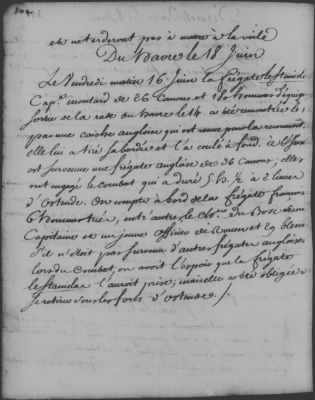 et ne tarderont pas à mettre à la voile
Du havre le 18 Juin
Le Vendredi matin 16 Juin la frégate le Stanislas
Cap.e montard de 26 Canons et 180 hommes d'équip.
sortie de la rade du havre le 14 a été rencontrée
par une caiche angloise qui est venue pour la reconnoit,
elle lui a tiré sa bordée et l'a coulé à fond. ce
est survenue une frégate angloise de 36 Canons; elles
ont engagé le Combat qui a duré 5 h. ½ à 2 lieues
d'ostende. On compte à bord de la frégate françois
6 hommes tués, entr'autres le Ch.er du Bosc
Capitaine et un jeune officier de Rouen et 29 blessés
s'il n'étoit pas survenu d'autres frégates angloises
lors du Combat, on avoit l'espoir que la frégate
le Stanislas l'auroit prise; mais elle a été obligée de
se retirer sous les forts d'ostende ./.